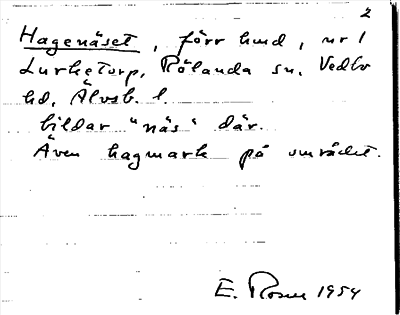 2
Hagenäset, förr hmd, nr 1
Lurketorp, Rölanda sn, Vedbo
hd, Älvsb. l.
bildar "näs" där.
Även hagmark på området.
E. Rosen 1954